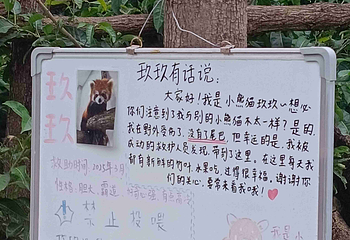 玖玖
玖玖有话说：
大家好！我是小熊猫玖玖～想必
你们注意到了我与别的小熊猫不太一样？是的，
我在野外受伤了，没有了尾巴，但幸运的是，我被
成功的救护人员发现，带到了这里，在这里每天我
都有新鲜的竹叶、水果吃，过得很幸福，谢谢你
们的关心，要常来看我哦！
救助时间：2025年3月
性格：胆大、霸道
禁止投喂
我是小